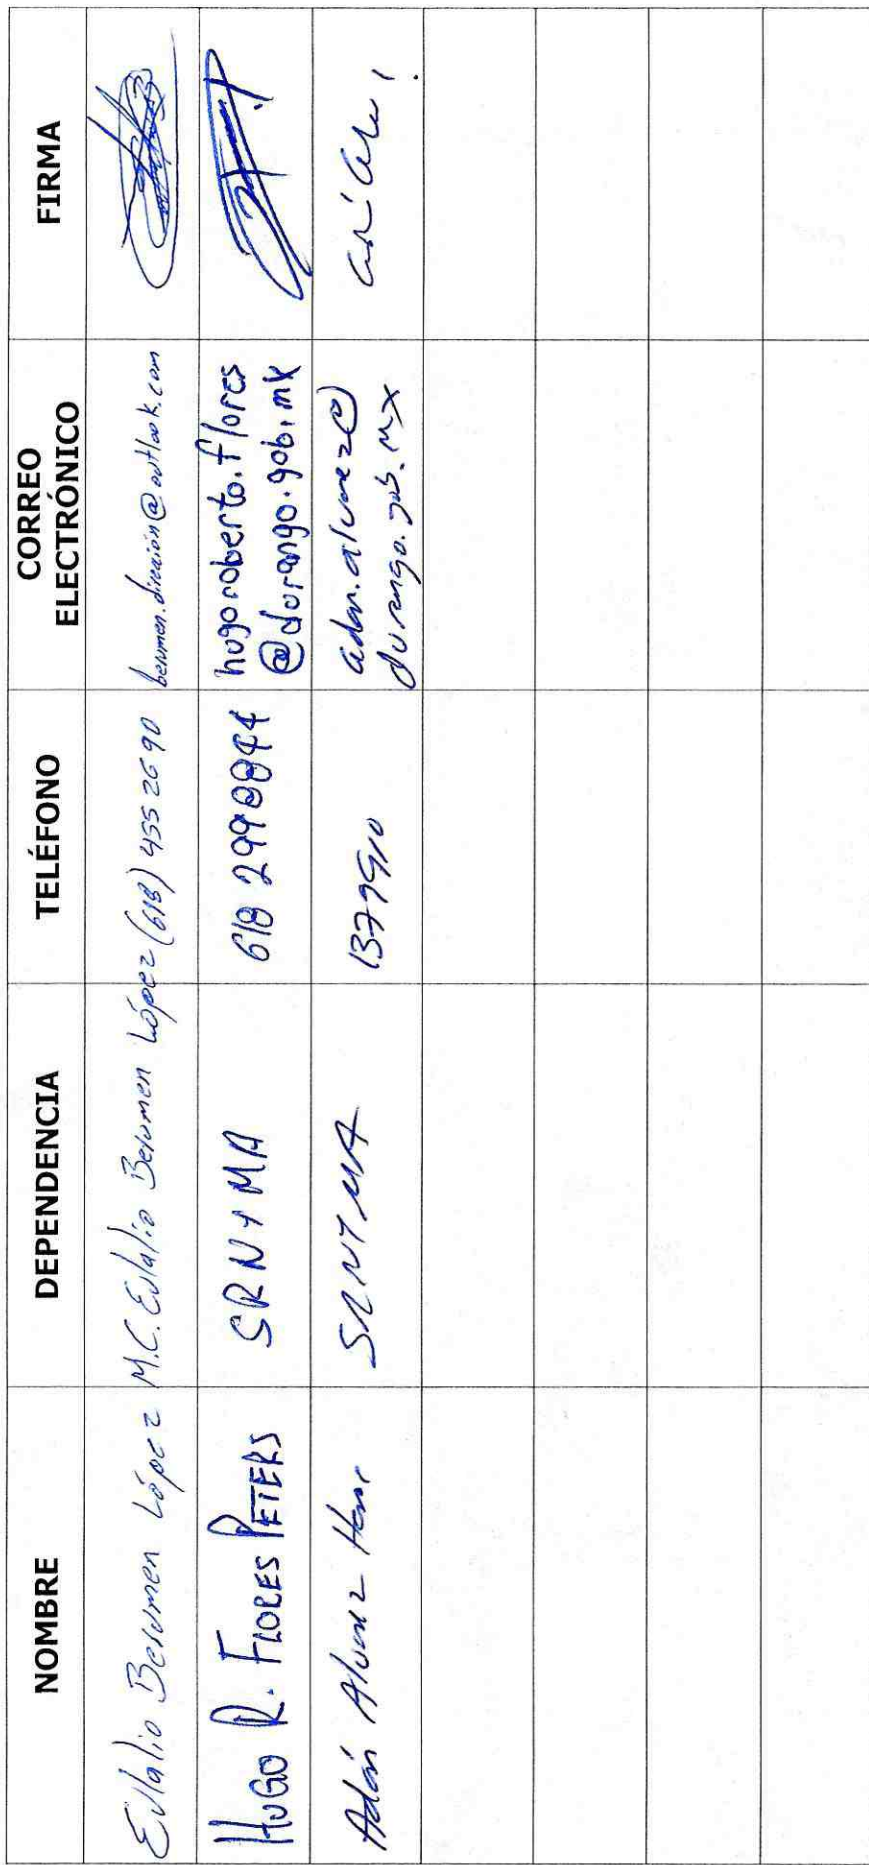 NOMBRE DEPENDENCIA TELÉFONO CORREO ELECTRÓNICO FIRMA
Eulalio Berumen López M.C. Eulalio Berumen López (618) 455 26 90 berumen.direccion@outlook.com
HUGO R. FLORES PETERS SRNyMA 618 2998844 hugoroberto.flores
@durango.gob.mx
Adán Alvarez SRNYMA 1379910 adan.alvarez@
durango.gob.mx